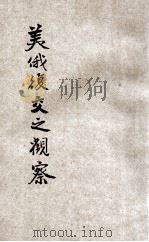 美俄復交之觀察